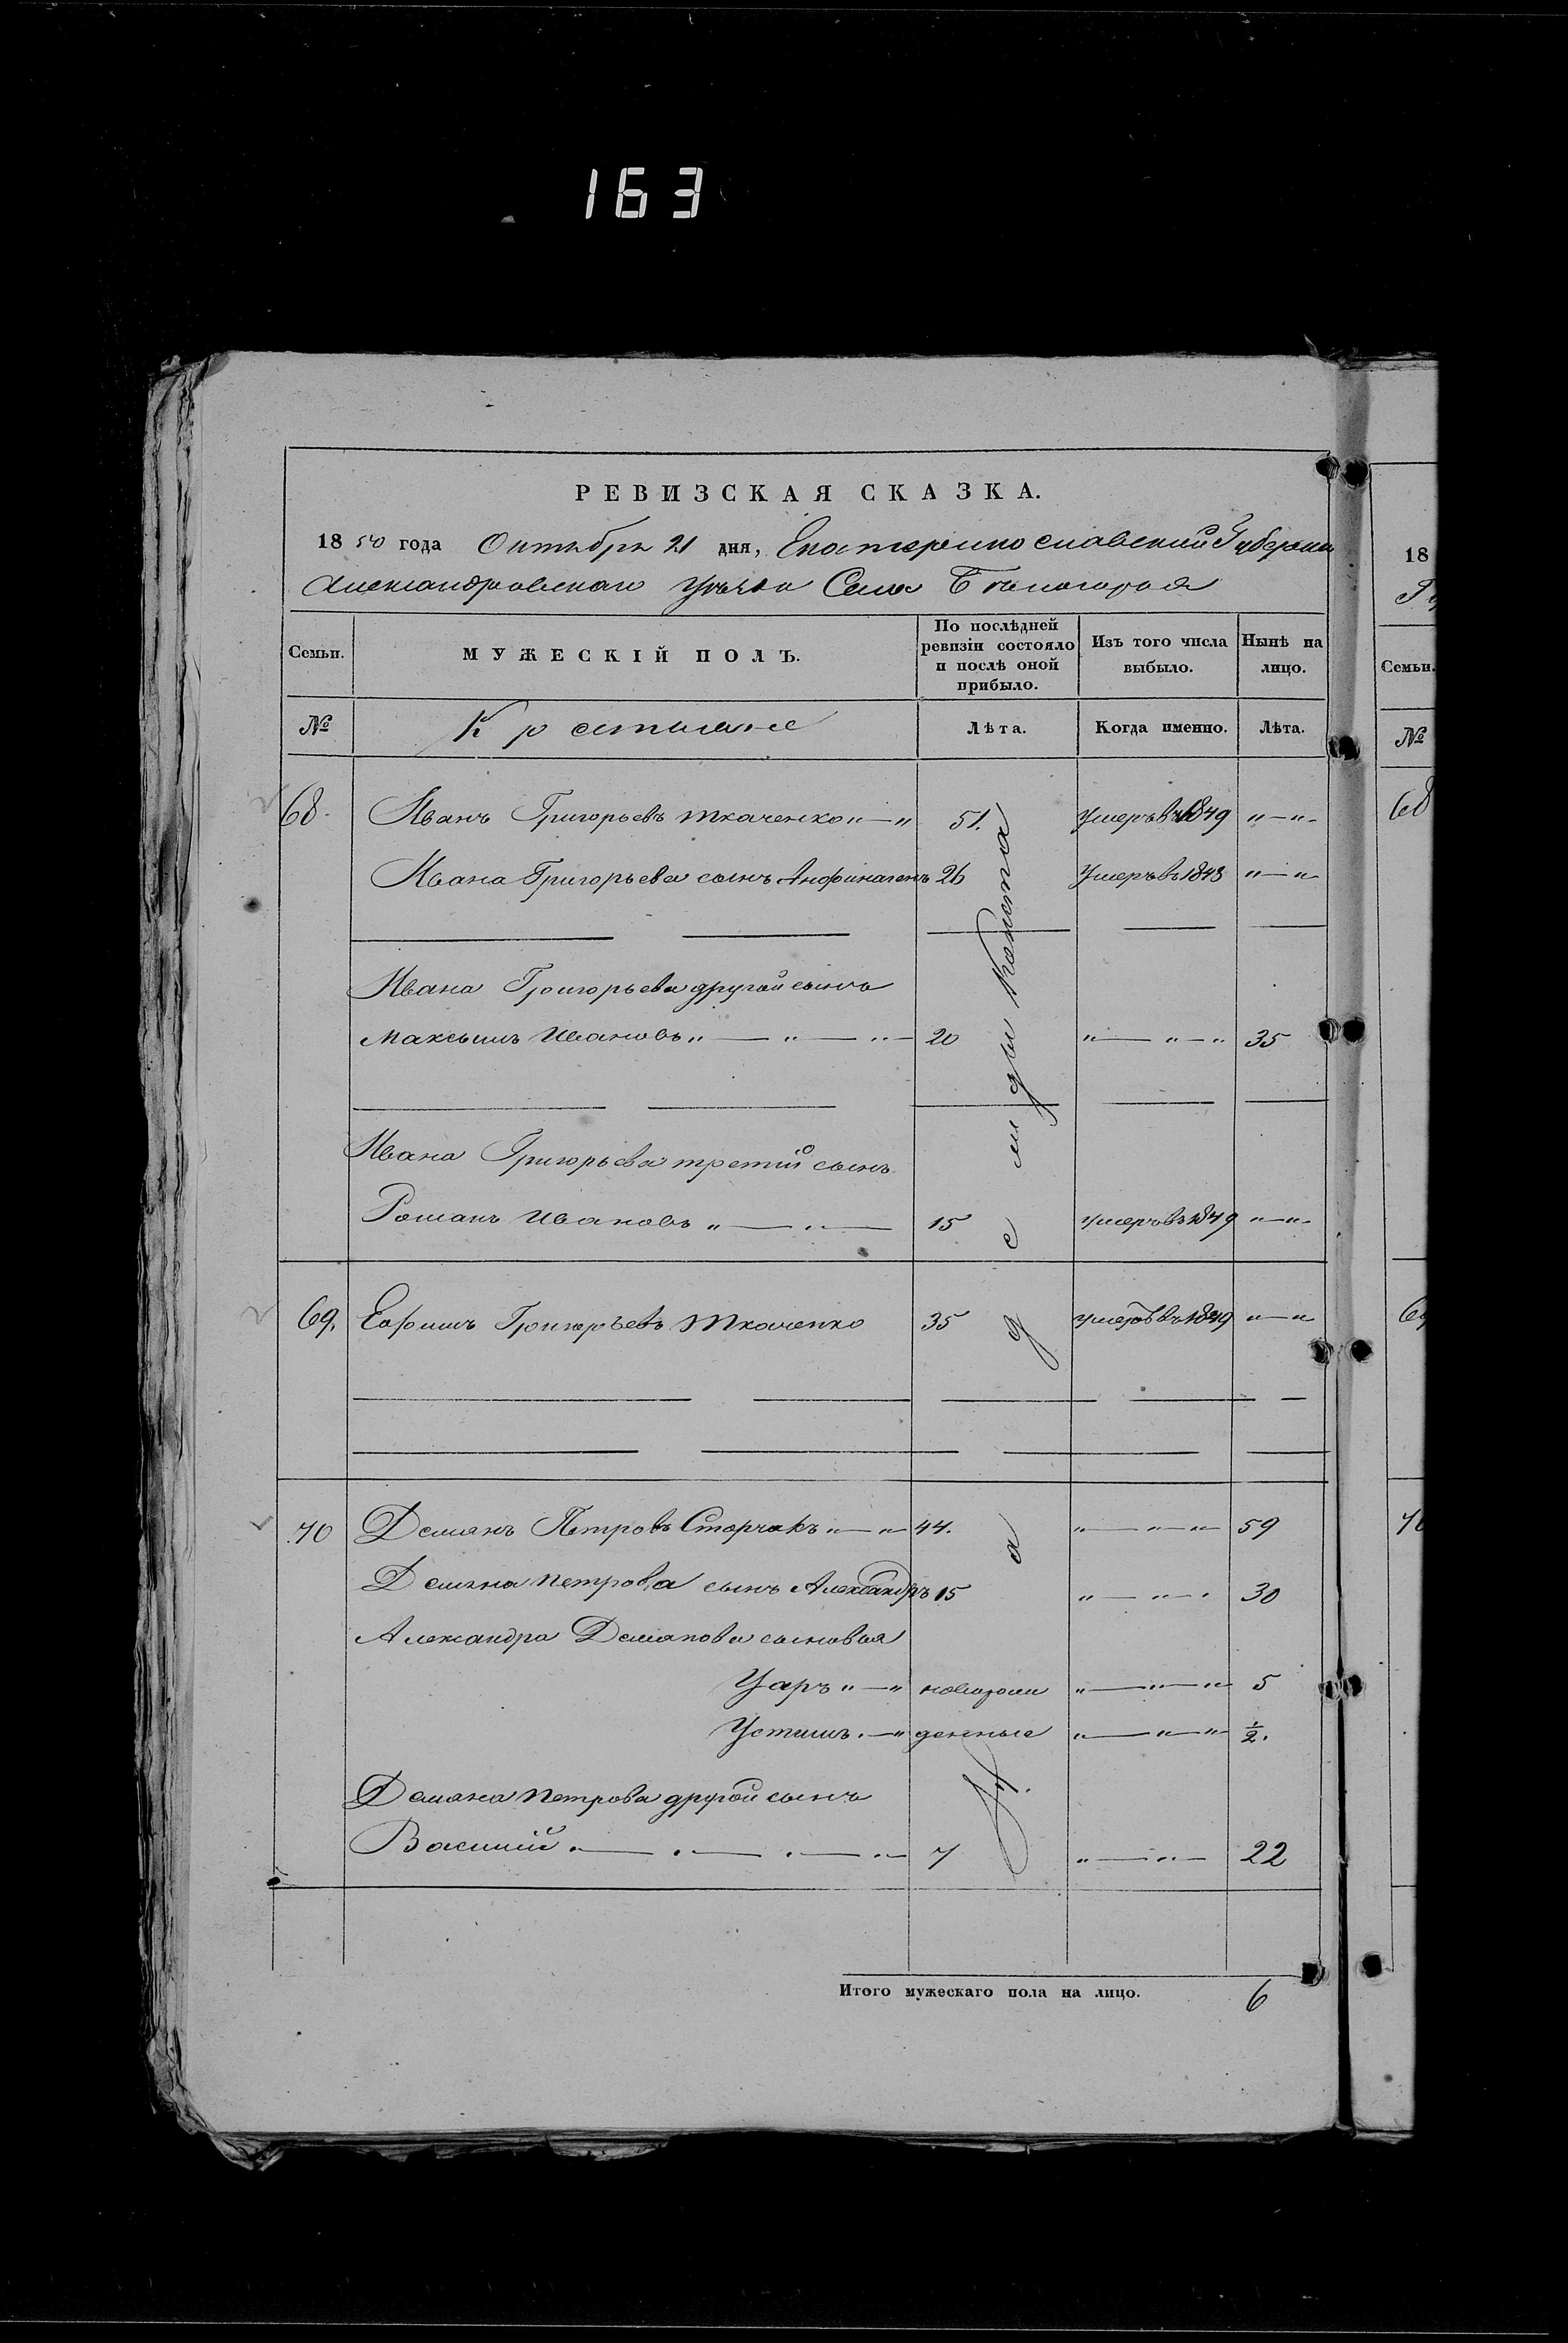 163
РЕВИЗСКАЯ СКАЗКА.
1850 года Октября 21 дня, Екатеринославской Губернии
Александровскаго уѣзда Села Бѣлогорья
Семьи. МУЖЕСКІЙ ПОЛЪ. По послѣдней ревизіи состояло и послѣ оной прибыло. Изъ того числа выбыло. Нынѣ на лицо.
№ Крестьяне Лѣта. Когда именно. Лѣта.
68. Иванъ Григорьевъ Ткаченко „—„ 51. умеръ въ 1849 „—„
Ивана Григорьева сынъ 26 Умеръ въ 1843 „—„
Ивана Григорьева другой сынъ
Максымъ Ивановъ „—„—„— 20 „—„—„ 35
Ивана Григорьева третій сынъ
Романъ Ивановъ „—„— 15 умеръ въ 1849 „—„
69. Ефимъ Григорьевъ Ткаченко 35 умеръ въ 1849 „—„
70 Демянъ Петровъ Сторчакъ „—„— 44. „—„—„— 59
Демяна Петрова сынъ Александръ 15 „—„—„ 30
Александра Демянова сыновья
Уаръ „—„ новорож „—„—„ 5
Устимъ „—„ денные „—„—„ ½.
Демяна Петрова другой сынъ
Василий „—„—„—„— 7 „—„— 22
Итого мужескаго пола на лицо. 6
18
Семьи.
№
68
69
70